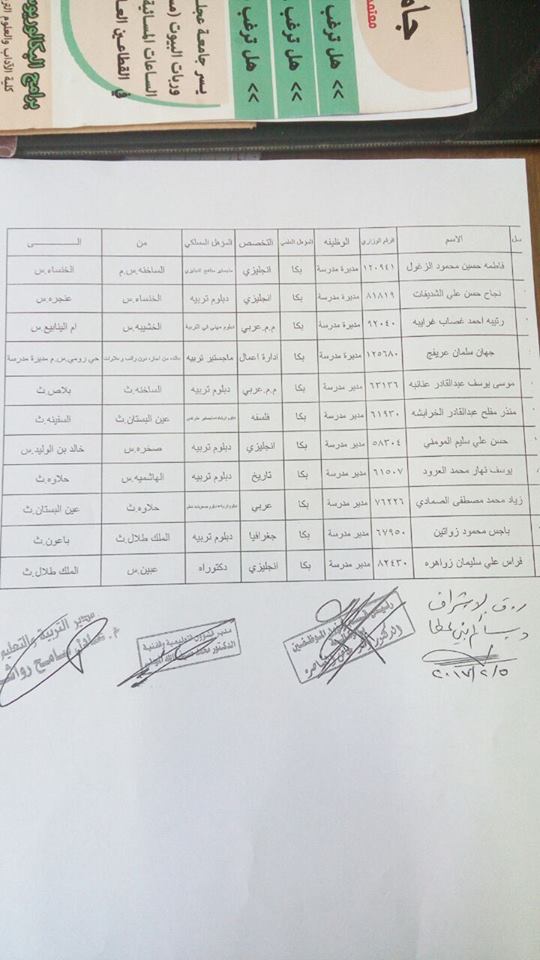 جامعة
معتمد
>> هل ترغب
>> هل ترغب
>> هل ترغب
يسر جامعة عجلـ
وربات البيوت
الساعات المسائية
في القطاعين العـا
برامج البكالوريوس
كلية الآداب والعلوم
الاسم الرقم الوزاري الوظيفه المؤهل العلمي التخصص المؤهل المسلكي من الــــى
فاطمه حسين محمود الزغول ١٢٠٩٤١ مديرة مدرسة بكا انجليزي الساخنه.س.م الخنساء.س
نجاح حسن علي الشديفات ٨١٨١٩ مديرة مدرسة بكا انجليزي دبلوم تربيه الخنساء.س عنجره.س
رتيبه احمد غصاب غرايبه ٩٢٠٤٠ مديرة مدرسة بكا م.م.عربي دبلوم مهني في التربية الخشيبه.س ام الينابيع.س
جهان سلمان عريفج ١٢٥٦٨٠ مديرة مدرسة بكا ادارة اعمال ماجستير تربيه حي رومي.س.م مديرة مدرسة
موسى يوسف عبدالقادر عنانبه ٦٣١٣٦ مدير مدرسة بكا م.م.عربي دبلوم تربيه الساخنه.ث بلاص.ث
منذر مفلح عبدالقادر الخرابشه ٦١٩٣٠ مدير مدرسة بكا فلسفه عين البستان.ث السفينه.ث
حسن علي سليم المومني ٥٨٣٠٤ مدير مدرسة بكا انجليزي دبلوم تربيه صخره.س خالد بن الوليد.س
يوسف نهار محمد العرود ٦١٥٠٧ مدير مدرسة بكا تاريخ دبلوم تربيه الهاشميه.س حلاوه.ث
زياد محمد مصطفى الصمادي ٧٦٢٢٦ مدير مدرسة بكا عربي حلاوه.ث عين البستان.ث
باجس محمود زواتين ٦٧٩٥٠ مدير مدرسة بكا جغرافيا دبلوم تربيه الملك طلال.ث باعون.ث
فراس علي سليمان زواهره ٨٢٤٣٠ مدير مدرسة بكا انجليزي دكتوراه عبين.س الملك طلال.ث
مدير التربية والتعليم
مدير الشؤون التعليمية والفنية
الدكتور
رئيس
الدكتور
٢٠١٧/٢/٥